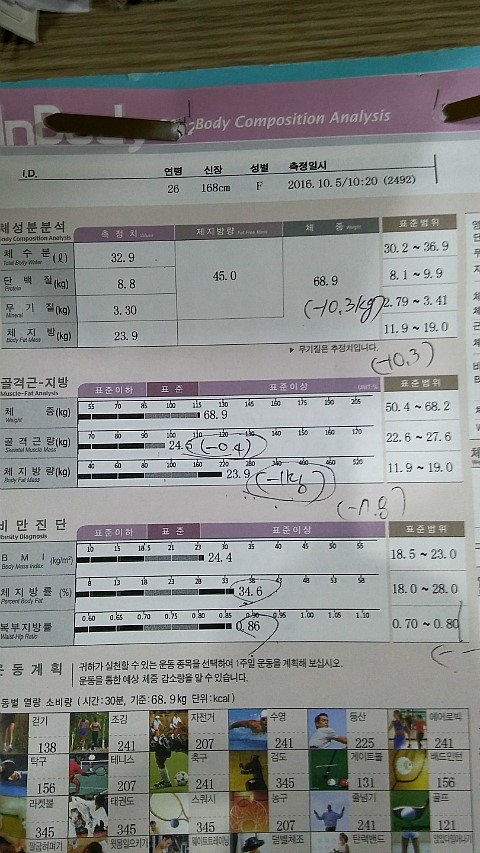 InBody Body Composition Analysis
I.D. 연령 신장 성별 측정일시
26 168cm F 2016.10.5/10:20 (2492)
체성분분석 측정치 제지방량 Fat Free Mass 체중 Weight 표준범위
Body Composition Analysis
체수분(ℓ) Total Body Water 32.9 45.0 68.9 30.2 ~ 36.9
단백질(kg) Protein 8.8 8.1 ~ 9.9
무기질(kg) Mineral 3.30 (-10.3kg) 2.79 ~ 3.41
체지방(kg) Body Fat Mass 23.9 11.9 ~ 19.0
▶ 무기질은 추정치입니다.
(-10.3)
골격근-지방 표준이하 표준 표준이상 UNIT:% 표준범위
Muscle-Fat Analysis
55 70 85 100 115 130 145 160 175 190 205
체중(kg) Weight 68.9 50.4 ~ 68.2
70 80 90 100 110 120 130 140 150 160 170
골격근량(kg) Skeletal Muscle Mass 24.5 (-0.4) 22.6 ~ 27.6
40 60 80 100 160 220 280 340 400 460 520
체지방량(kg) Body Fat Mass 23.9 (-1kg) 11.9 ~ 19.0
비만진단 표준이하 표준 표준이상 표준범위
Obesity Diagnosis
10 15 18.5 21 23 30 35 40 45 50 55
BMI (kg/m²) Body Mass Index 24.4 18.5 ~ 23.0
8 13 18 23 28 33 38 43 48 53 58
체지방률 (%) Percent Body Fat 34.6 18.0 ~ 28.0
0.60 0.65 0.70 0.75 0.80 0.85 0.90 0.95 1.00 1.05 1.10
복부지방률 Waist-Hip Ratio 0.86 0.70 ~ 0.80
운동계획 귀하가 실천할 수 있는 운동 종목을 선택하여 1주일 운동을 계획해 보십시오.
운동을 통한 예상 체중 감소량을 알 수 있습니다.
운동별 열량 소비량 (시간:30분, 기준:68.9kg 단위:kcal)
걷기 조깅 자전거 수영 등산 에어로빅
138 241 207 241 225 241
탁구 테니스 축구 검도 게이트볼 배드민턴
156 207 241 345 131 156
라켓볼 태권도 스쿼시 농구 줄넘기 골프
345 345 345 207 241 121
팔굽혀펴기 윗몸일으키기 웨이트트레이닝 덤벨체조 탄력밴드